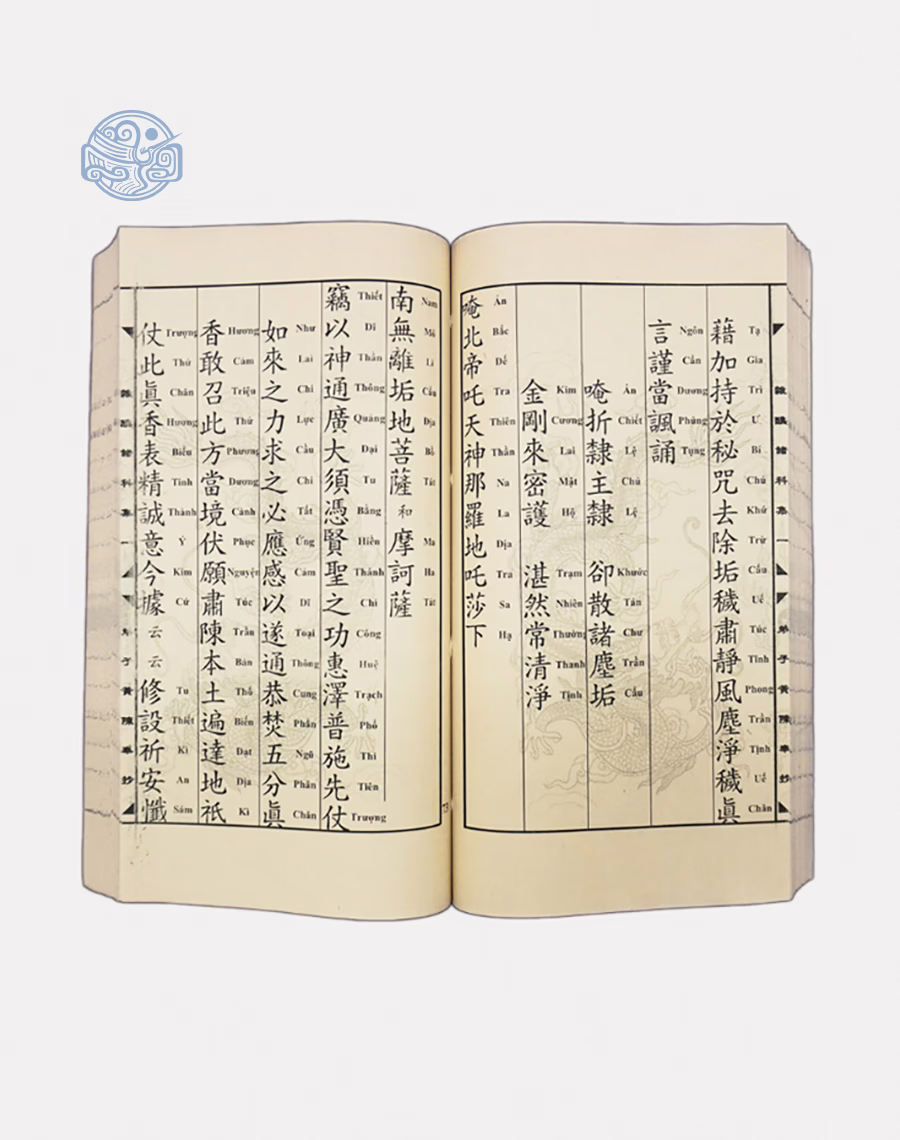 藉加持於秘咒去除垢穢肅靜風塵淨穢眞
Tạ Gia Trì Ư Bí Chú Khứ Trừ Cấu Uế Túc Tĩnh Phong Trần Tịnh Uế Chân
言謹當諷誦
Ngôn Cẩn Dương Phúng Tụng
唵折隸主隸 卻散諸塵垢
Án Chiết Lệ Chủ Lệ Khước Tán Chư Trần Cấu
金剛來密護 湛然常清淨
Kim Cương Lai Mật Hộ Trạm Nhiên Thường Thanh Tịnh
唵北帝吒天神那羅地吒莎下
Án Bắc Đế Tra Thiên Thần Na La Địa Tra Sa Hạ
南無離垢地菩薩和摩訶薩
Nam Mô Li Cấu Địa Bồ Tát Ma Ha Tát
竊以神通廣大須憑賢聖之功惠澤普施先仗
Thiết Dĩ Thần Thông Quảng Đại Tu Bằng Hiền Thánh Chi Công Huệ Trạch Phổ Thi Tiên Trượng
如來之力求之必應感以遂通恭焚五分眞
Như Lai Chi Lực Cầu Chi Tất Ứng Cảm Dĩ Toại Thông Cung Phần Ngũ Phân Chân
香敢召此方當境伏願肅陳本土遍達地祇
Hương Cảm Triệu Thử Phương Dương Cảnh Phục Nguyện Túc Trần Bản Thổ Biến Đạt Địa Kì
仗此眞香表精誠意今據云云修設祈安懺
Trượng Thử Chân Hương Biểu Tinh Thành Ý Kim Cứ Tu Thiết Kì An Sám